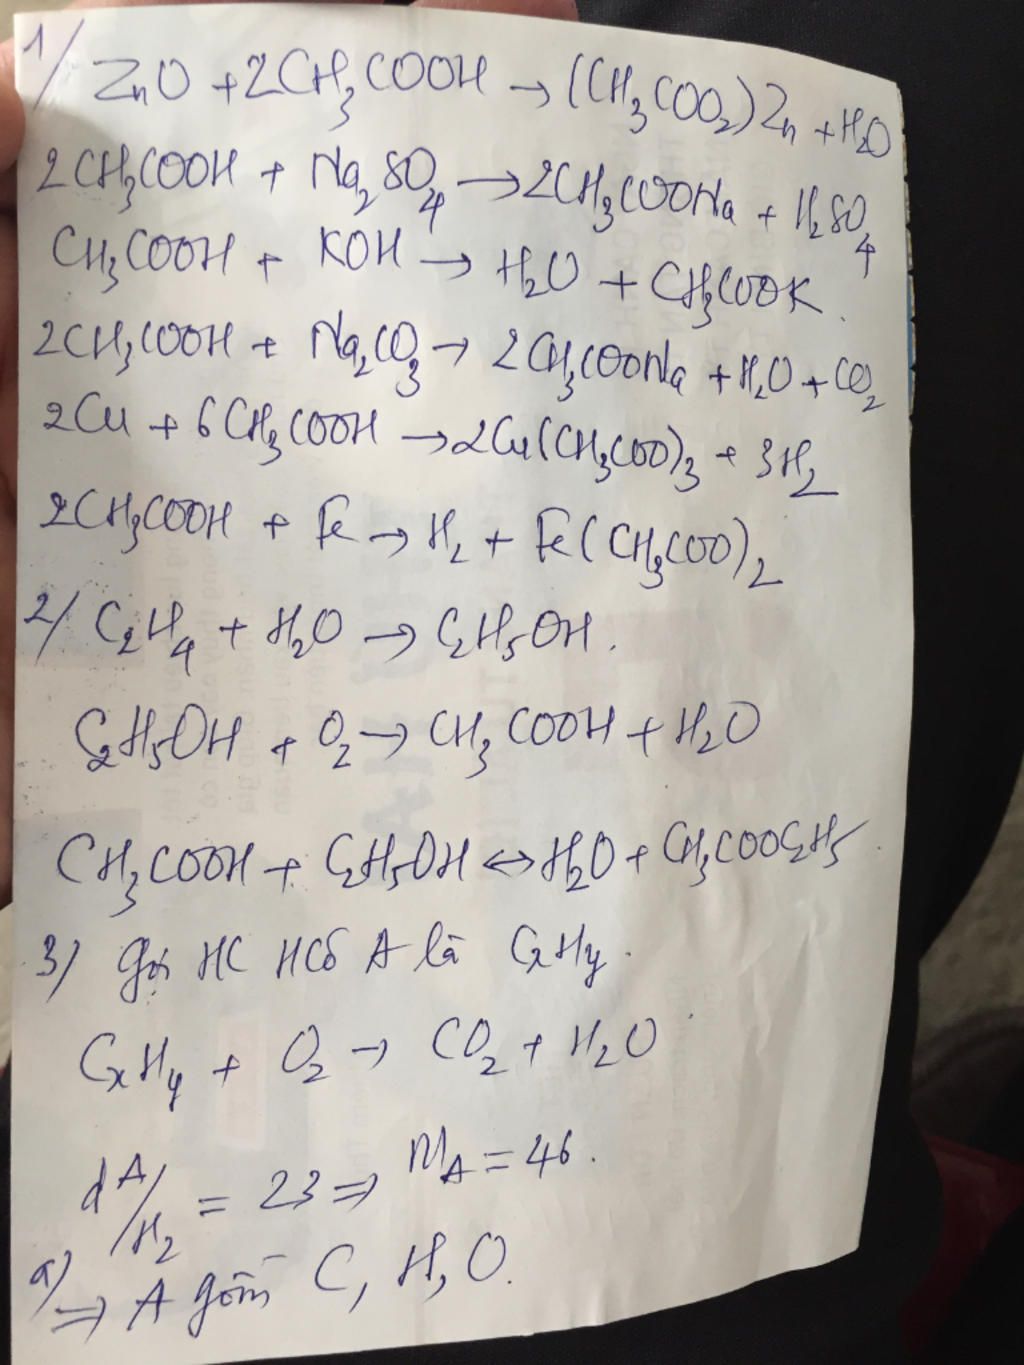 1/ ZnO + 2CH₃COOH → (CH₃COO₂)Zn + H₂O
2CH₃COOH + Na₂SO₄ → 2CH₃COONa + H₂SO₄
CH₃COOH + KOH → H₂O + CH₃COOK.
2CH₃COOH + Na₂CO₃ → 2CH₃COONa + H₂O + CO₂
2Cu + 6CH₃COOH → 2Cu(CH₃COO)₃ + 3H₂
2CH₃COOH + Fe → H₂ + Fe(CH₃COO)₂
2/ C₂H₄ + H₂O → C₂H₅OH.
C₂H₅OH + O₂ → CH₃COOH + H₂O
CH₃COOH + C₂H₅OH ↔ H₂O + CH₃COOC₂H₅.
3) Gọi HC HCơ A là CxHy.
CxHy + O₂ → CO₂ + H₂O
d A/H₂ = 23 ⇒ MA = 46.
a) ⇒ A gồm C, H, O.